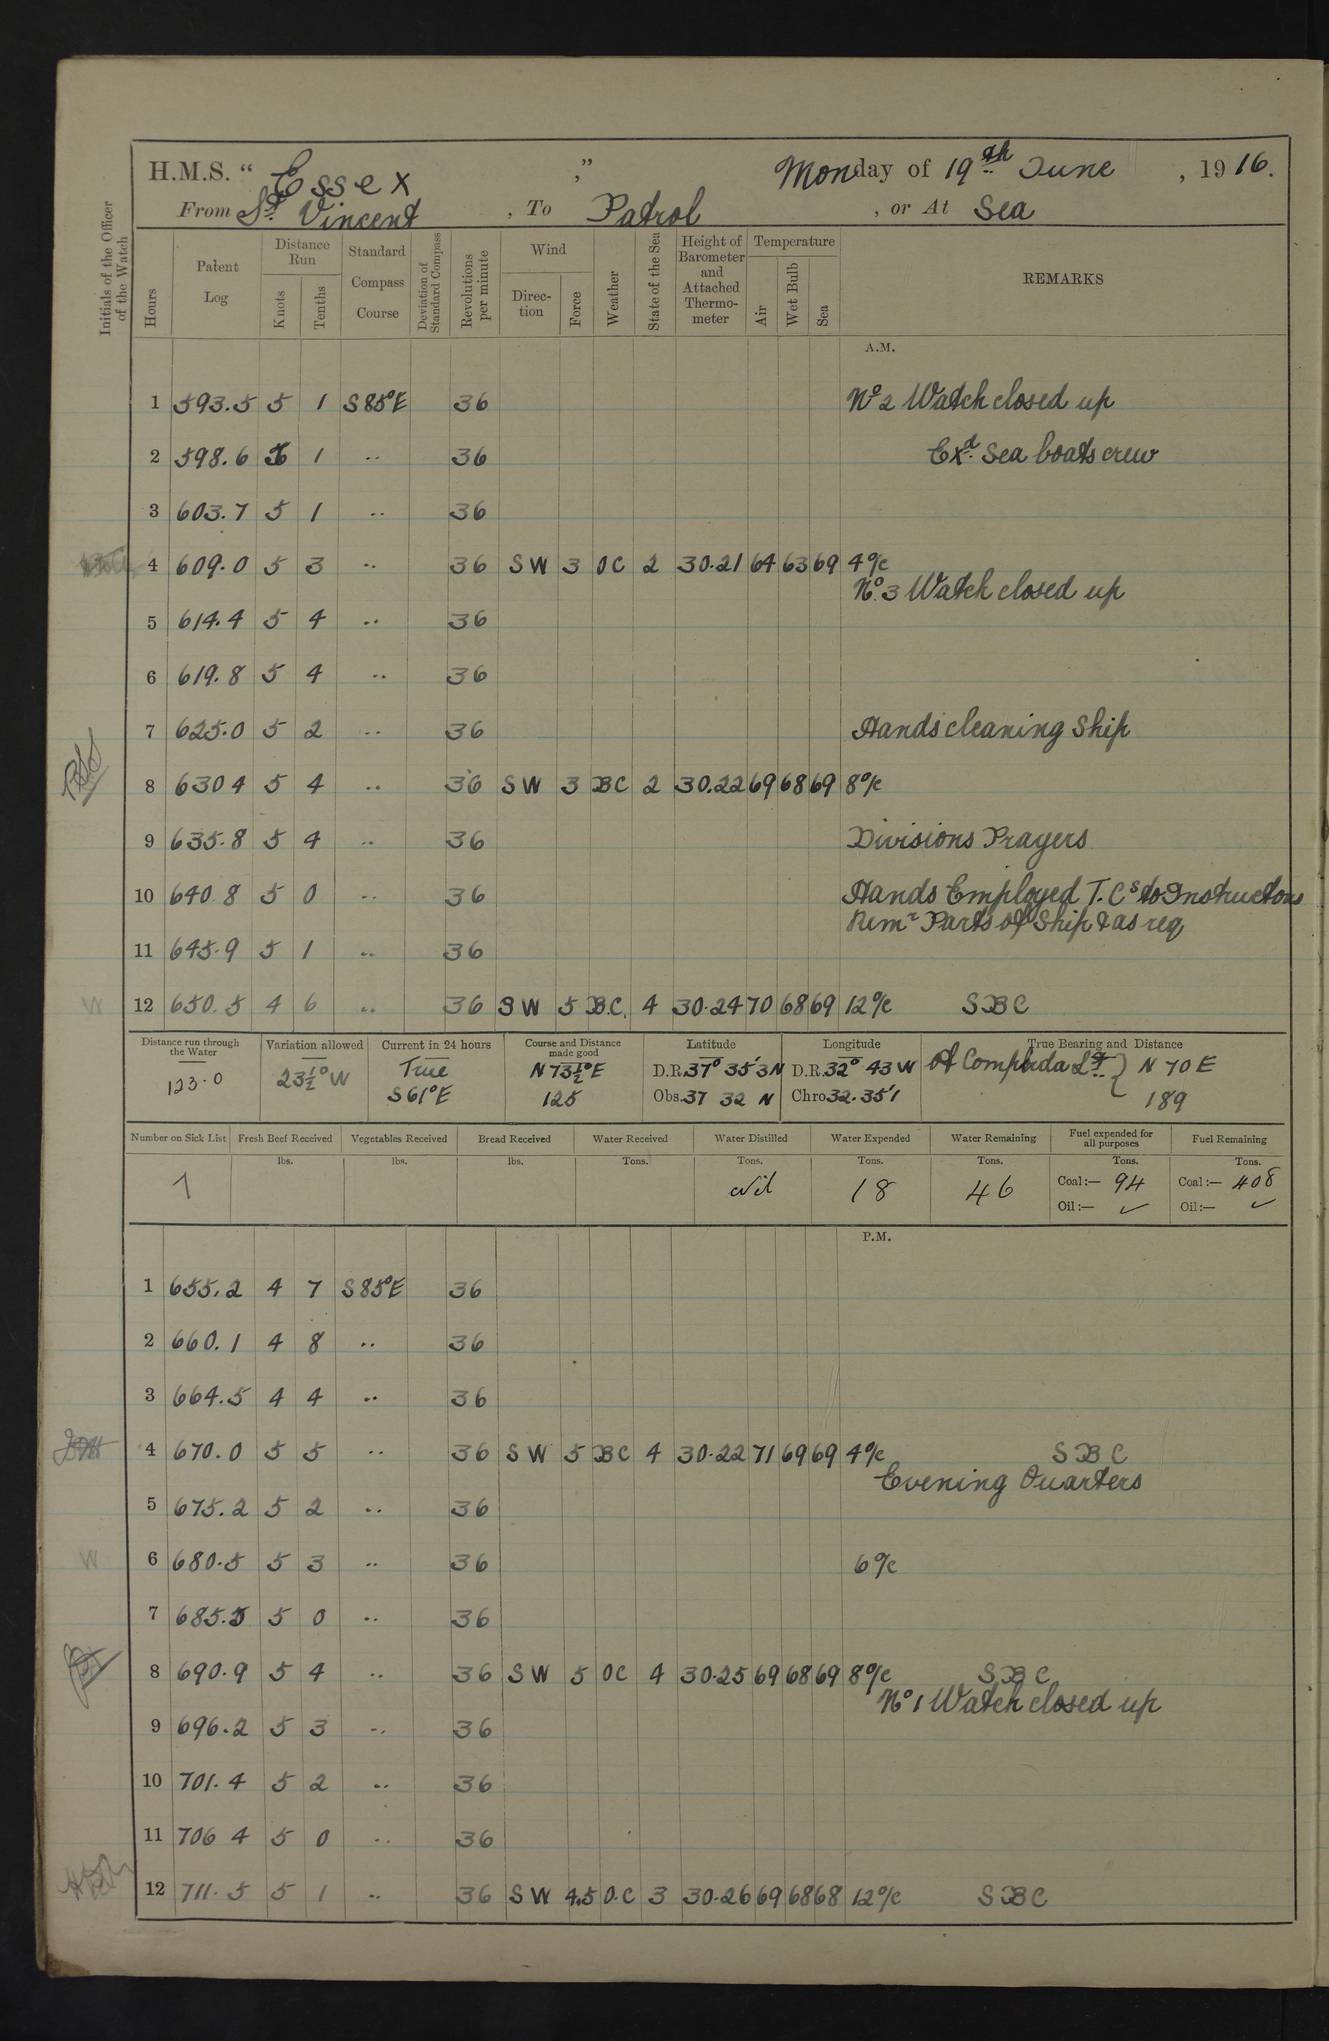 H.M.S. “ Essex ”, Monday of 19th June, 1916.
From St Vincent, To Patrol, or At Sea
Initials of the Officer of the Watch
Hours Patent Log Distance Run Knots Tenths Standard Compass Course Deviation of Standard Compass Revolutions per minute Wind Direction Force Weather State of the Sea Height of Barometer and Attached Thermometer Temperature Air Wet Bulb Sea REMARKS
A.M.
1 593.5 5 1 S85°E 36 No 2 Watch closed up
2 598.6 5 1 .. 36 Exd. Sea boats crew
3 603.7 5 1 .. 36
4 609.0 5 3 .. 36 SW 3 OC 2 30.21 64 63 69 4 o/c
No. 3 Watch closed up
5 614.4 5 4 .. 36
6 619.8 5 4 .. 36
7 625.0 5 2 .. 36 Hands cleaning Ship
8 630 4 5 4 .. 36 SW 3 BC 2 30.22 69 68 69 8 o/c
9 635.8 5 4 .. 36 Divisions Prayers
10 640 8 5 0 .. 36 Hands Employed T.Cs to Instructors
Remr Parts of Ship & as req
11 645.9 5 1 .. 36
W 12 650.5 4 6 .. 36 SW 5 B.C. 4 30.24 70 68 69 12 o/c SBC
Distance run through the Water Variation allowed Current in 24 hours Course and Distance made good Latitude Longitude True Bearing and Distance
123.0 23½° W True S61°E N73½°E 125 D.R. 37° 35'3N Obs. 37 32 N D.R. 32° 43 W Chro 32.35'1 Of Lt. } N 70 E 189
Number on Sick List Fresh Beef Received Vegetables Received Bread Received Water Received Water Distilled Water Expended Water Remaining Fuel expended for all purposes Fuel Remaining
lbs. lbs. lbs. Tons. Tons. Tons. Tons. Tons. Tons.
7 Nil 18 46 Coal:— 94 Coal:— 408
Oil:— ✓ Oil:— ✓
P.M.
1 655.2 4 7 S85°E 36
2 660.1 4 8 .. 36
3 664.5 4 4 .. 36
4 670.0 5 5 .. 36 SW 5 BC 4 30.22 71 69 69 4 o/c SBC
Evening Quarters
5 675.2 5 2 .. 36
W 6 680.5 5 3 .. 36 6 o/c
7 685.5 5 0 .. 36
8 690.9 5 4 .. 36 SW 5 OC 4 30.25 69 68 69 8 o/c SBC
No 1 Watch closed up
9 696.2 5 3 .. 36
10 701.4 5 2 .. 36
11 706 4 5 0 .. 36
12 711.5 5 1 .. 36 SW 4.5 O.C 3 30.26 69 68 68 12 o/c SBC